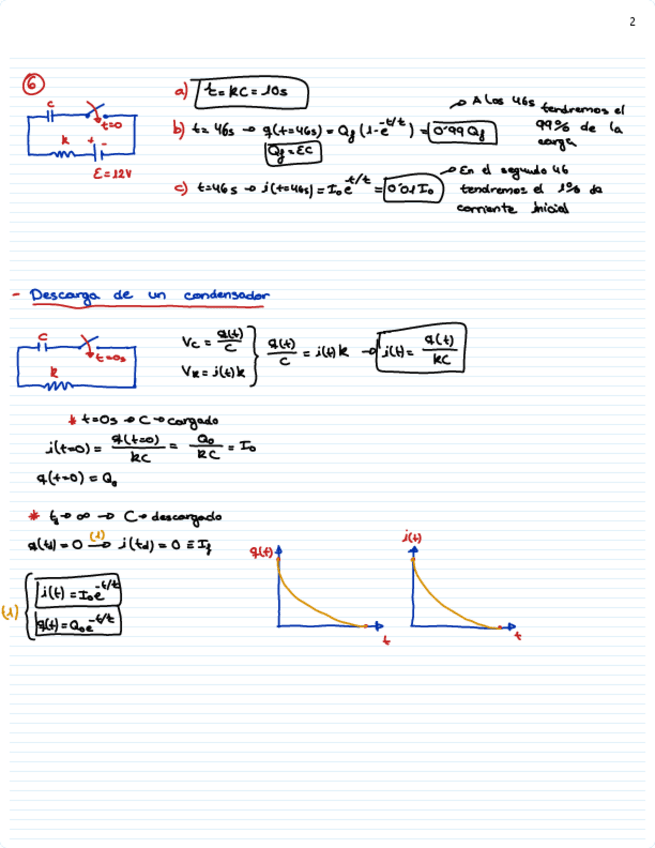 2
6
a) t = RC = 10s
C
t=0
R
+ -
ε = 12V
b) t = 46s → q(t=46s) = Qf (1-e^-t/t) = 0'99 Qf
Qf = εC
→ A los 46s tendremos el
99% de la
carga
c) t=46s → i(t=46s) = I₀e^-t/t = 0'01 I₀
→ En el segundo 46
tendremos el 1% de
corriente inicial
- Descarga de un condensador
C
t=0s
R
Vc = q(t)/C
VR = i(t)R
q(t)/C = i(t)R → i(t) = q(t)/RC
* t=0s → C → cargado
i(t=0) = q(t=0)/RC = Q₀/RC = I₀
q(t=0) = Q₀
* td → ∞ → C → descargado
q(td) = 0 (1)→ i(td) = 0 ≡ If
(1) { i(t) = I₀e^-t/t
q(t) = Q₀e^-t/t
q(t)
t
i(t)
t